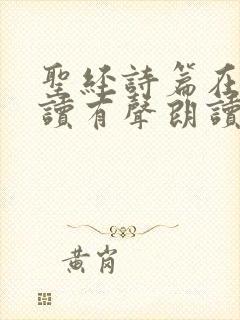 聖經詩篇在
讀有聲朗讀
黃岗